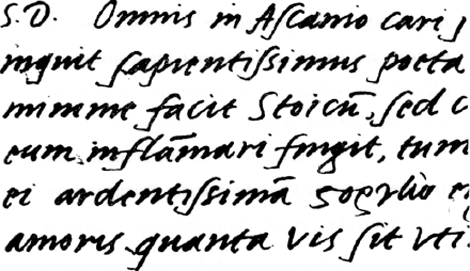 S.D. Omnis in Aſcanio cari
inquit ſapientiſsimus poeta
minime facit Stoicū, ſed c
eum inflāmari fingit, tum
ei ardentiſsimā
amoris quanta vis ſit vti